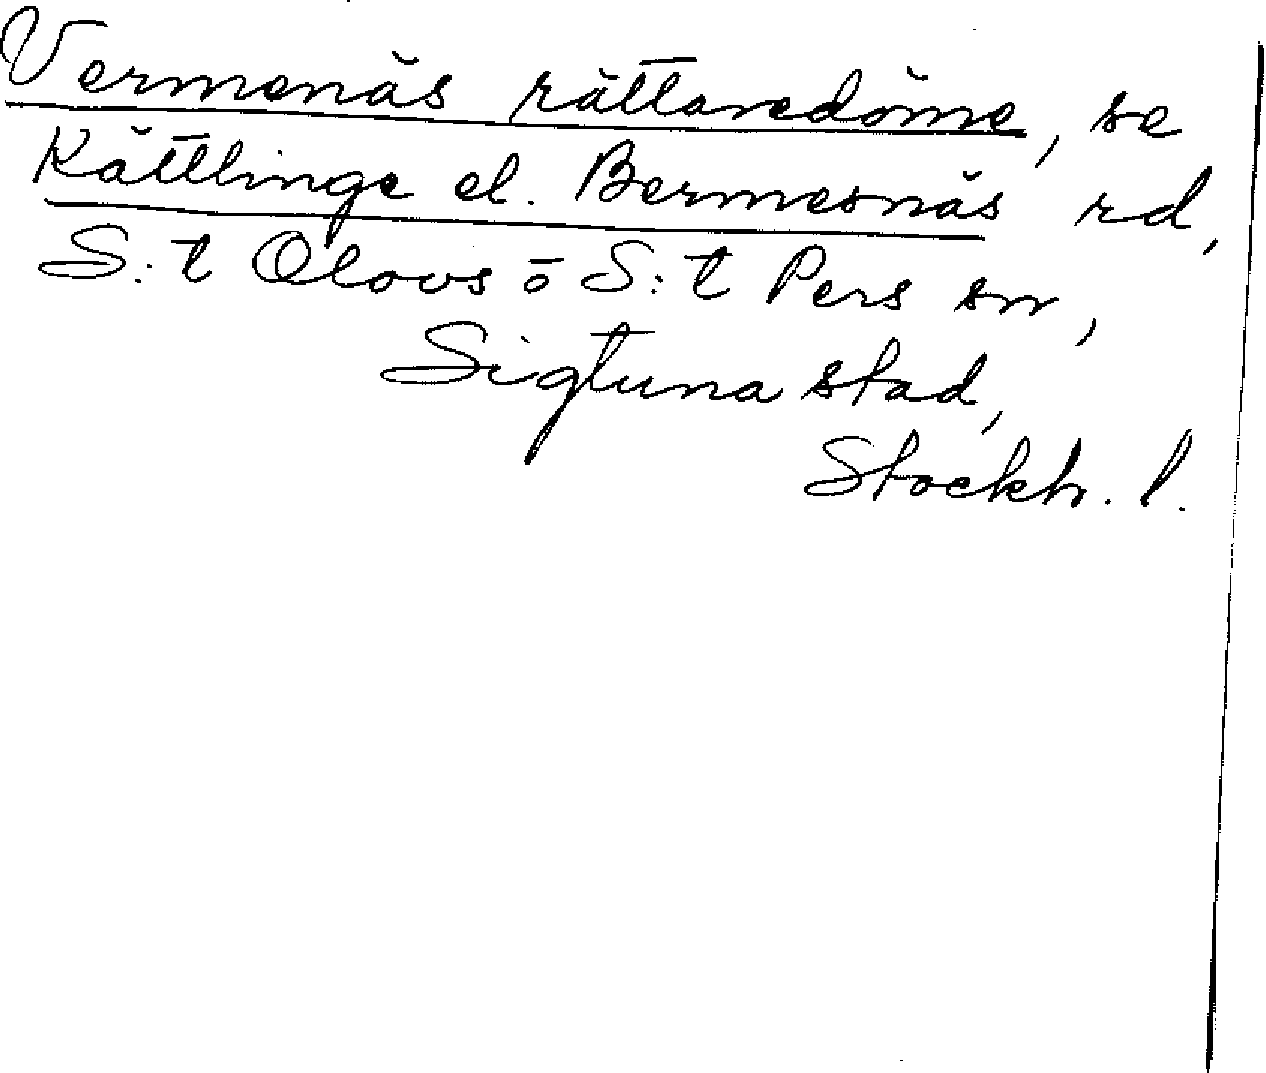 Vermenäs rättaredöme, se
Kättlinge el. Bermesnäs rd,
S:t Olovs o S:t Pers snr,
Sigtuna stad,
Stockh. l.